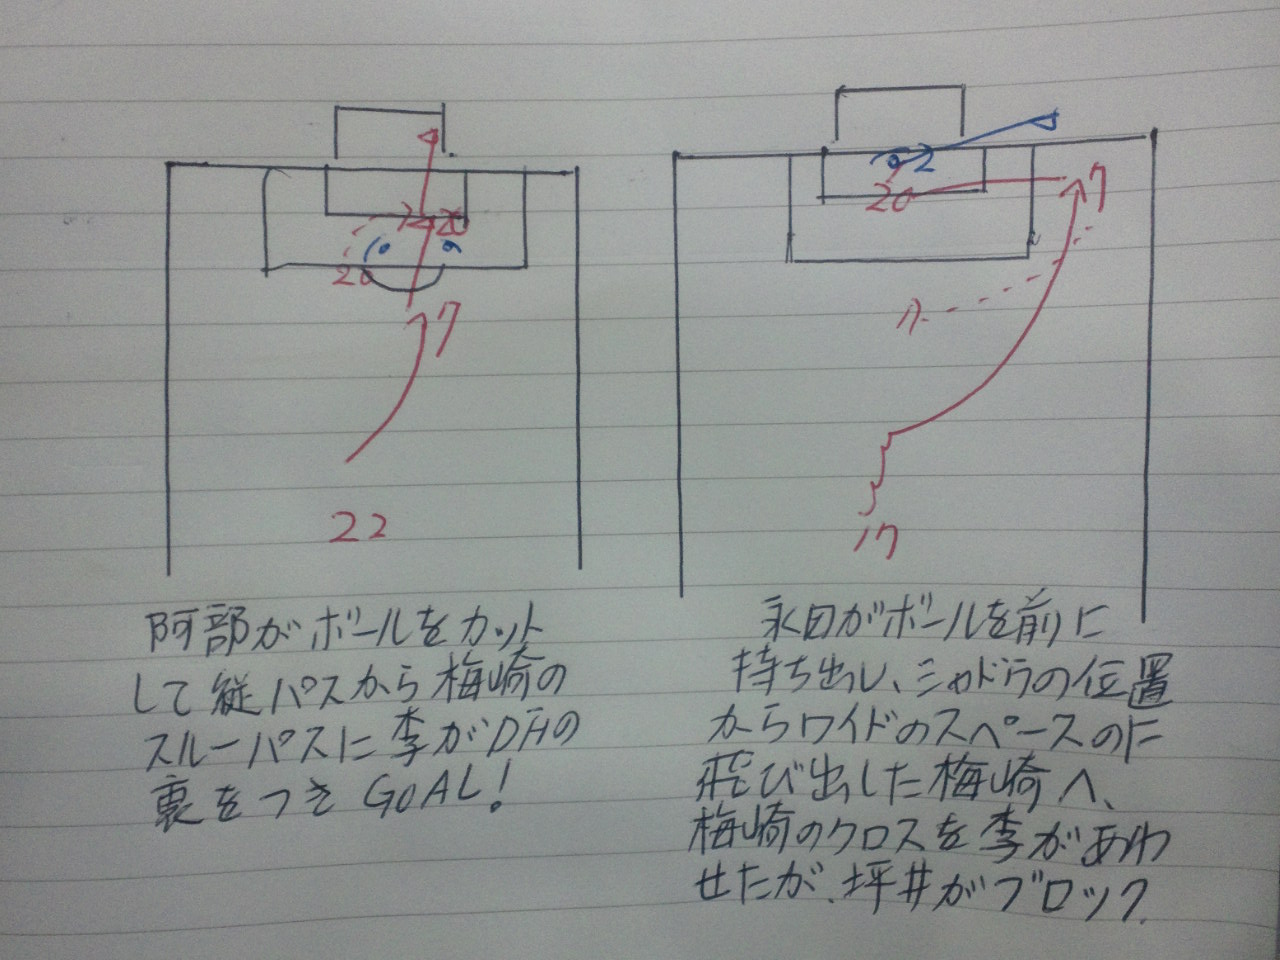 20
20
7
22
阿部がボールをカット
して縦パスから梅崎の
スルーパスに李がDFの
裏をつきGOAL!
2
20
7
7
17
永田がボールを前に
持ち出し、シャドウの位置
からワイドのスペースのに
飛び出した梅崎へ、
梅崎のクロスを李があわ
せたが、坪井がブロック.